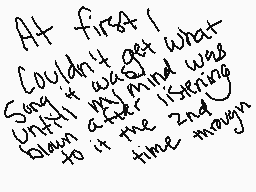 At first I
Couldn't get what
Song it was
untill my mind was
blown after listening
to it the 2nd
time through